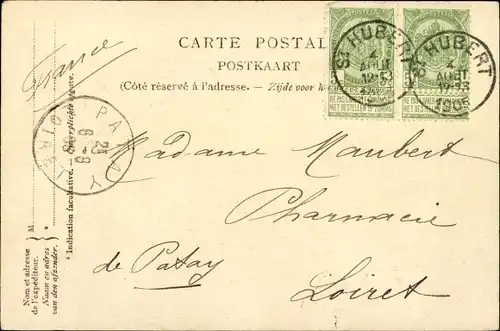 CARTE POSTAL
POSTKAART
(Côté réservé à l'adresse. — Zijde voor
France
St HUBERT
4
AOUT
12-13
1905
St HUBERT
4
AOUT
12-13
1905
NE PAS LIVRER
NIET BESTELLEN
PATAY
LOIRET
Madame Maubert
Pharmacie
de Patay
Loiret
* Indication facultative. — Onverplichte opgave.
M.
Nom et adresse
de l'expéditeur.
Naam en adres
van den afzender.